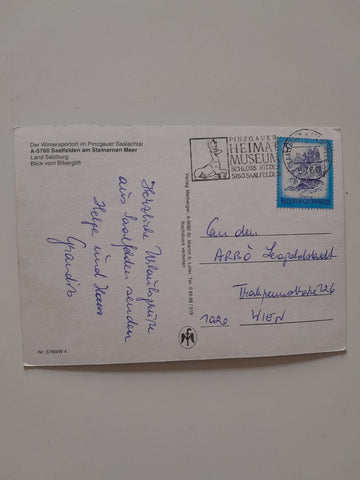 Der Wintersportort im Pinzgauer Saalachtal
A-5760 Saalfelden am Steinernen Meer
Land Salzburg
Blick vom Biberglift
PINZGAUER
HEIMAT
MUSEUM
SCHLOSS RITZEN
5760 SAALFELDEN
5760
REPUBLIK ÖSTERREICH
Herzliche Urlaubsgrüße
aus Saalfelden senden
Helge und Hans
Verlag Meisberger, A-5092 St. Martin b. Lofer, Tel. 0 65 88 / 519
Nachdruck verboten
An den
ARBÖ Leopoldstadt
1020 WIEN
Nr. 5760/W 4